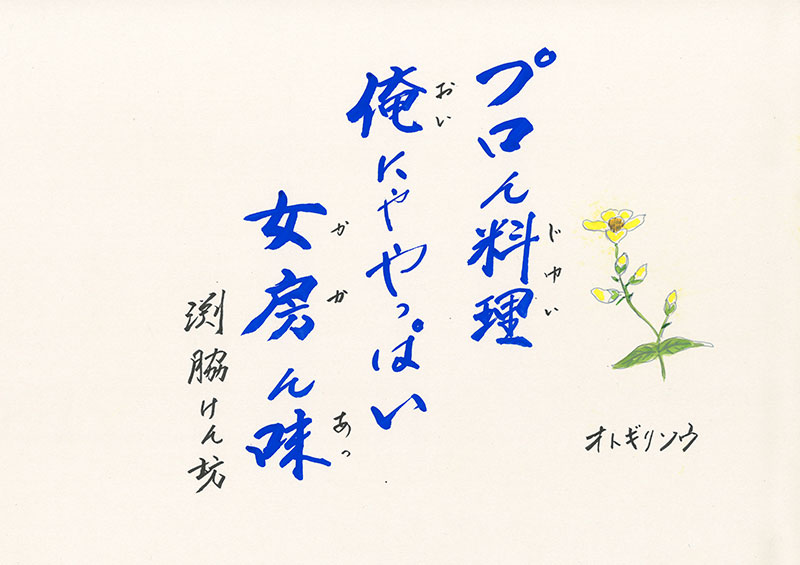 プロん料理
じゆい
俺にゃやっぱい
おい
女房ん味
かか
あっ
渕脇けん坊
オトギリソウ